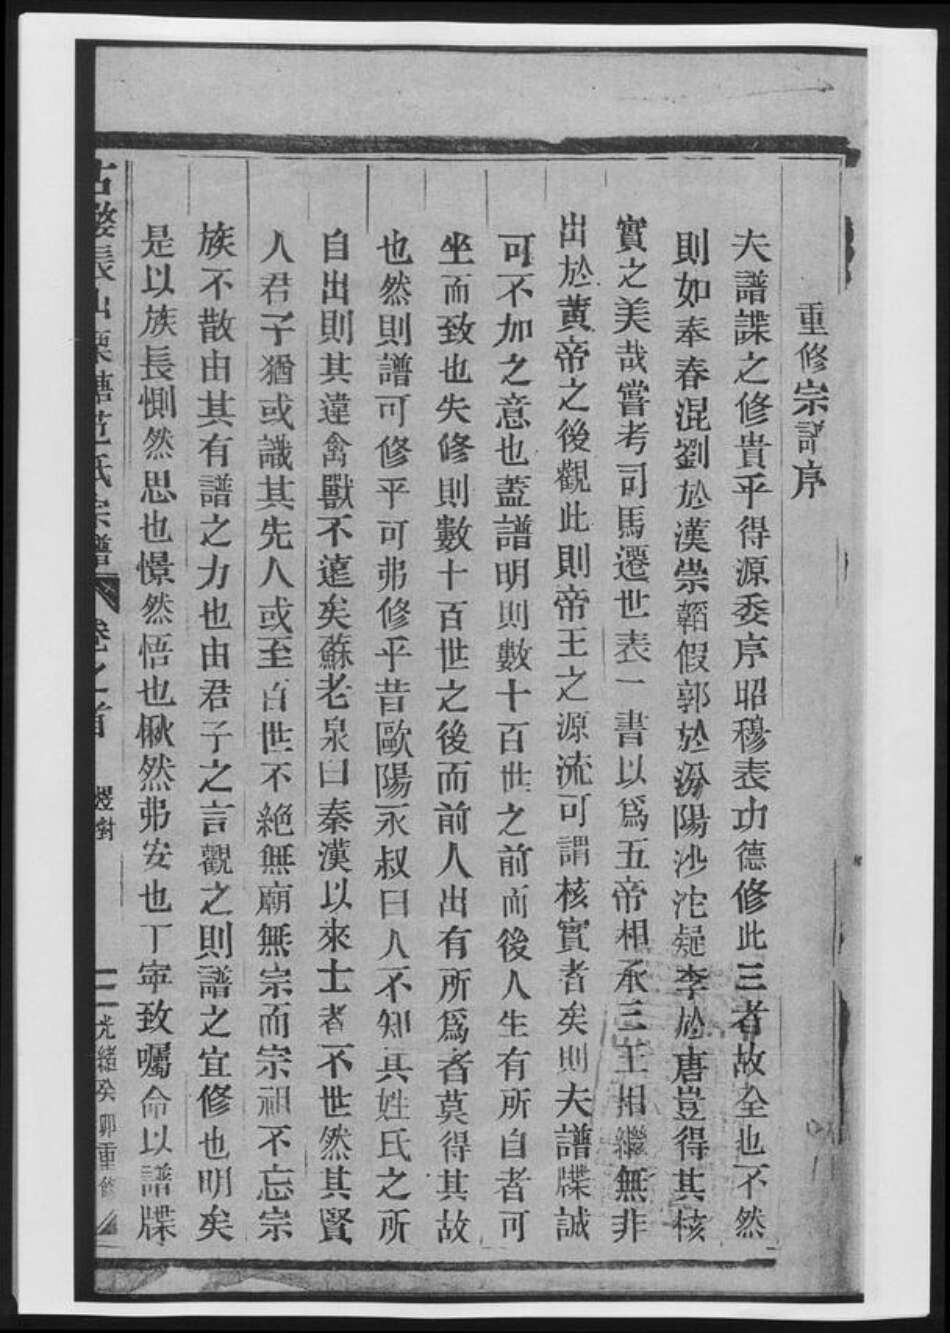 重修宗譜序
夫譜諜之修貴乎得源委序昭穆表功德修此三者故全也不然
則如奉春混劉於漢崇韜假郭於汾陽沙沱疑李於唐豈得其核
實之美哉嘗考司馬遷世表一書以爲五帝相承三王相繼無非
出於黃帝之後觀此則帝王之源流可謂核實者矣則夫譜牒誠
可不加之意也蓋譜明則數十百世之前而後人生有所自者可
坐而致也失修則數十百世之後而前人出有所爲者莫得其故
也然則譜可修乎可弗修乎昔歐陽永叔曰人不知其姓氏之所
自出則其違禽獸不遠矣蘇老泉曰秦漢以來士者不世然其賢
人君子猶或識其先人或至百世不絶無廟無宗而宗祖不忘宗
族不散由其有譜之力也由君子之言觀之則譜之宜修也明矣
是以族長惻然思也憬然悟也楸然弗安也丁寧致囑命以譜牒
古婺長山栗塘范氏宗譜 卷之首 燮對 二 光緒癸卯重修